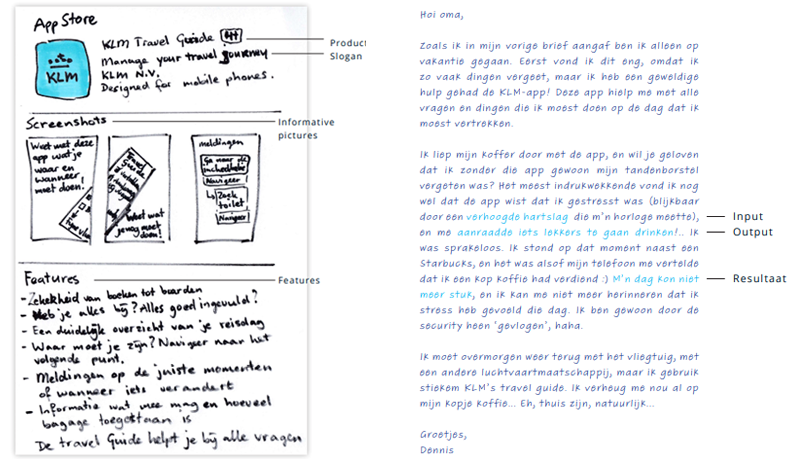 App Store
KLM
KLM Travel Guide 4+
Manage your travel journey
KLM N.V.
Designed for mobile phones.
Product
Slogan
Screenshots
Informative
pictures
Weet met deze
app wat je
waar en
wanneer
moet doen!
Travel
Guide
Weet wat
je nog moet
doen!
meldingen
Ga naar de
incheckbalie
Navigeer
Zoek
toilet
Navigeer
Features
Features
- Zekerheid van boeken tot boarden
- Heb je alles bij? Alles goed ingevuld?
- Een duidelijk overzicht van je reisdag
- Waar moet je zijn? Navigeer naar het
volgende punt.
- Meldingen op de juiste momenten
of wanneer iets verandert
- Informatie wat mee mag en hoeveel
bagage toegestaan is
De travel Guide helpt je bij alle vragen
Hoi oma,
Zoals ik in mijn vorige brief aangaf ben ik alleen op
vakantie gegaan. Eerst vond ik dit eng, omdat ik
zo vaak dingen vergeet, maar ik heb een geweldige
hulp gehad de KLM-app! Deze app hielp me met alle
vragen en dingen die ik moest doen op de dag dat ik
moest vertrekken.
Ik liep mijn koffer door met de app, en wil je geloven
dat ik zonder die app gewoon mijn tandenborstel
vergeten was? Het meest indrukwekkende vond ik nog
wel dat de app wist dat ik gestresst was (blijkbaar
door een verhoogde hartslag die m'n horloge meette),
en me aanraadde iets lekkers te gaan drinken!.. Ik
was sprakeloos. Ik stond op dat moment naast een
Starbucks, en het was alsof mijn telefoon me vertelde
dat ik een kop koffie had verdiend :) M'n dag kon niet
meer stuk, en ik kan me niet meer herinneren dat ik
stress heb gevoeld die dag. Ik ben gewoon door de
security heen 'gevlogen', haha.
Input
Output
Resultaat
Ik moet overmorgen weer terug met het vliegtuig, met
een andere luchtvaartmaatschappij, maar ik gebruik
stiekem KLM's travel guide. Ik verheug me nou al op
mijn kopje koffie... Eh, thuis zijn, natuurlijk...
Groetjes,
Dennis